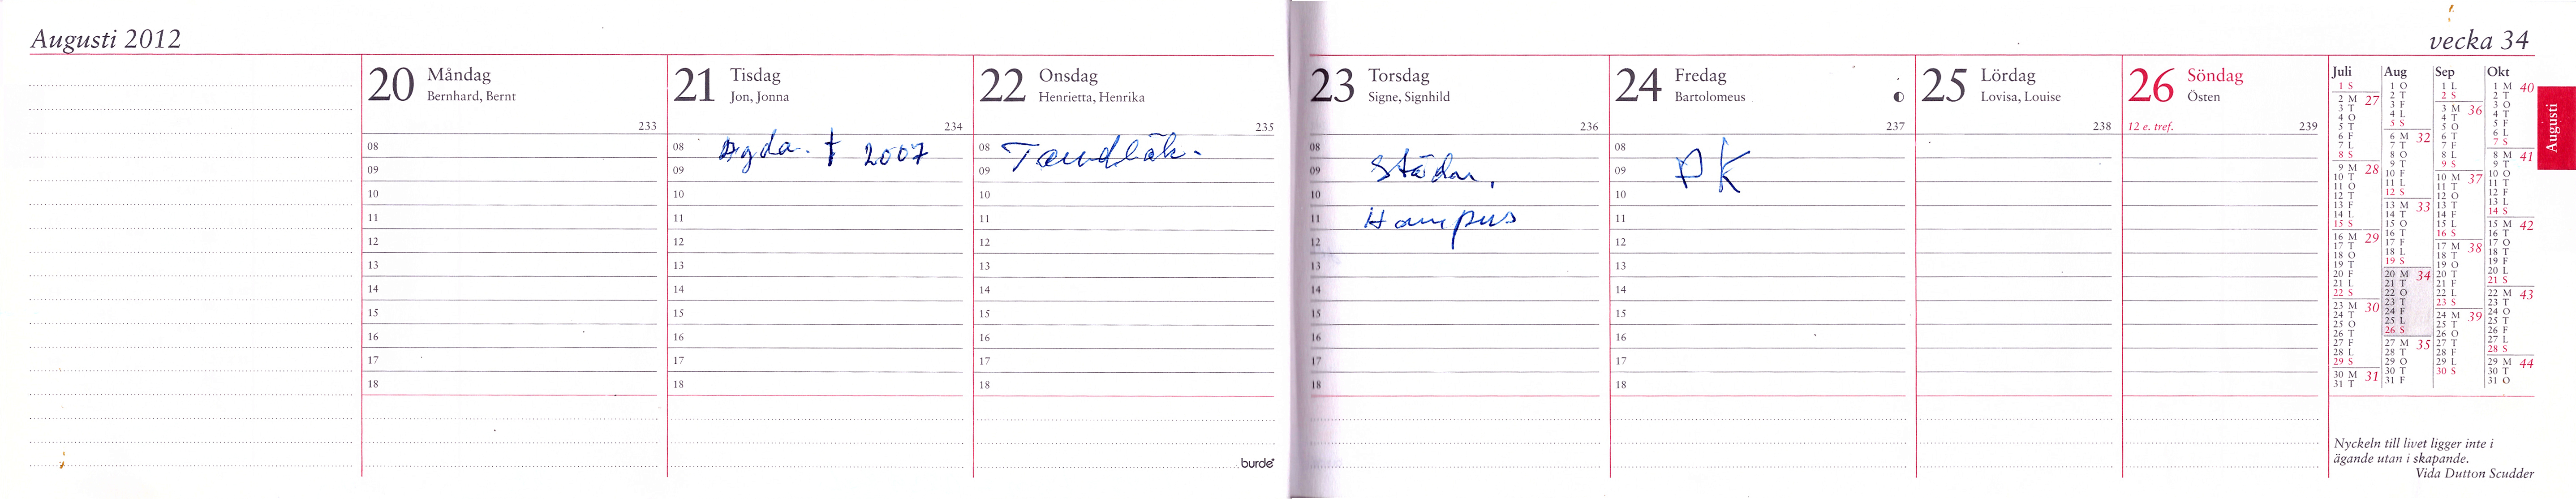 Augusti 2012
vecka 34
20 Måndag
Bernhard, Bernt
233
08
09
10
11
12
13
14
15
16
17
18
21 Tisdag
Jon, Jonna
234
08 Agda. † 2007
09
10
11
12
13
14
15
16
17
18
22 Onsdag
Henrietta, Henrika
235
08 Tandläk.
09
10
11
12
13
14
15
16
17
18
burde
23 Torsdag
Signe, Signhild
236
08
09 Städar,
10
11 Hampus
12
13
14
15
16
17
18
24 Fredag
Bartolomeus
237
08
09 PK
10
11
12
13
14
15
16
17
18
25 Lördag
Lovisa, Louise
238
26 Söndag
Östen
12 e. tref. 239
Juli
1 S
2 M 27
3 T
4 O
5 T
6 F
7 L
8 S
9 M 28
10 T
11 O
12 T
13 F
14 L
15 S
16 M 29
17 T
18 O
19 T
20 F
21 L
22 S
23 M 30
24 T
25 O
26 T
27 F
28 L
29 S
30 M 31
31 T
Aug
1 O
2 T
3 F
4 L
5 S
6 M 32
7 T
8 O
9 T
10 F
11 L
12 S
13 M 33
14 T
15 O
16 T
17 F
18 L
19 S
20 M 34
21 T
22 O
23 T
24 F
25 L
26 S
27 M 35
28 T
29 O
30 T
31 F
Sep
1 L
2 S
3 M 36
4 T
5 O
6 T
7 F
8 L
9 S
10 M 37
11 T
12 O
13 T
14 F
15 L
16 S
17 M 38
18 T
19 O
20 T
21 F
22 L
23 S
24 M 39
25 T
26 O
27 T
28 F
29 L
30 S
Okt
1 M 40
2 T
3 O
4 T
5 F
6 L
7 S
8 M 41
9 T
10 O
11 T
12 F
13 L
14 S
15 M 42
16 T
17 O
18 T
19 F
20 L
21 S
22 M 43
23 T
24 O
25 T
26 F
27 L
28 S
29 M 44
30 T
31 O
Augusti
Nyckeln till livet ligger inte i
ägande utan i skapande.
Vida Dutton Scudder